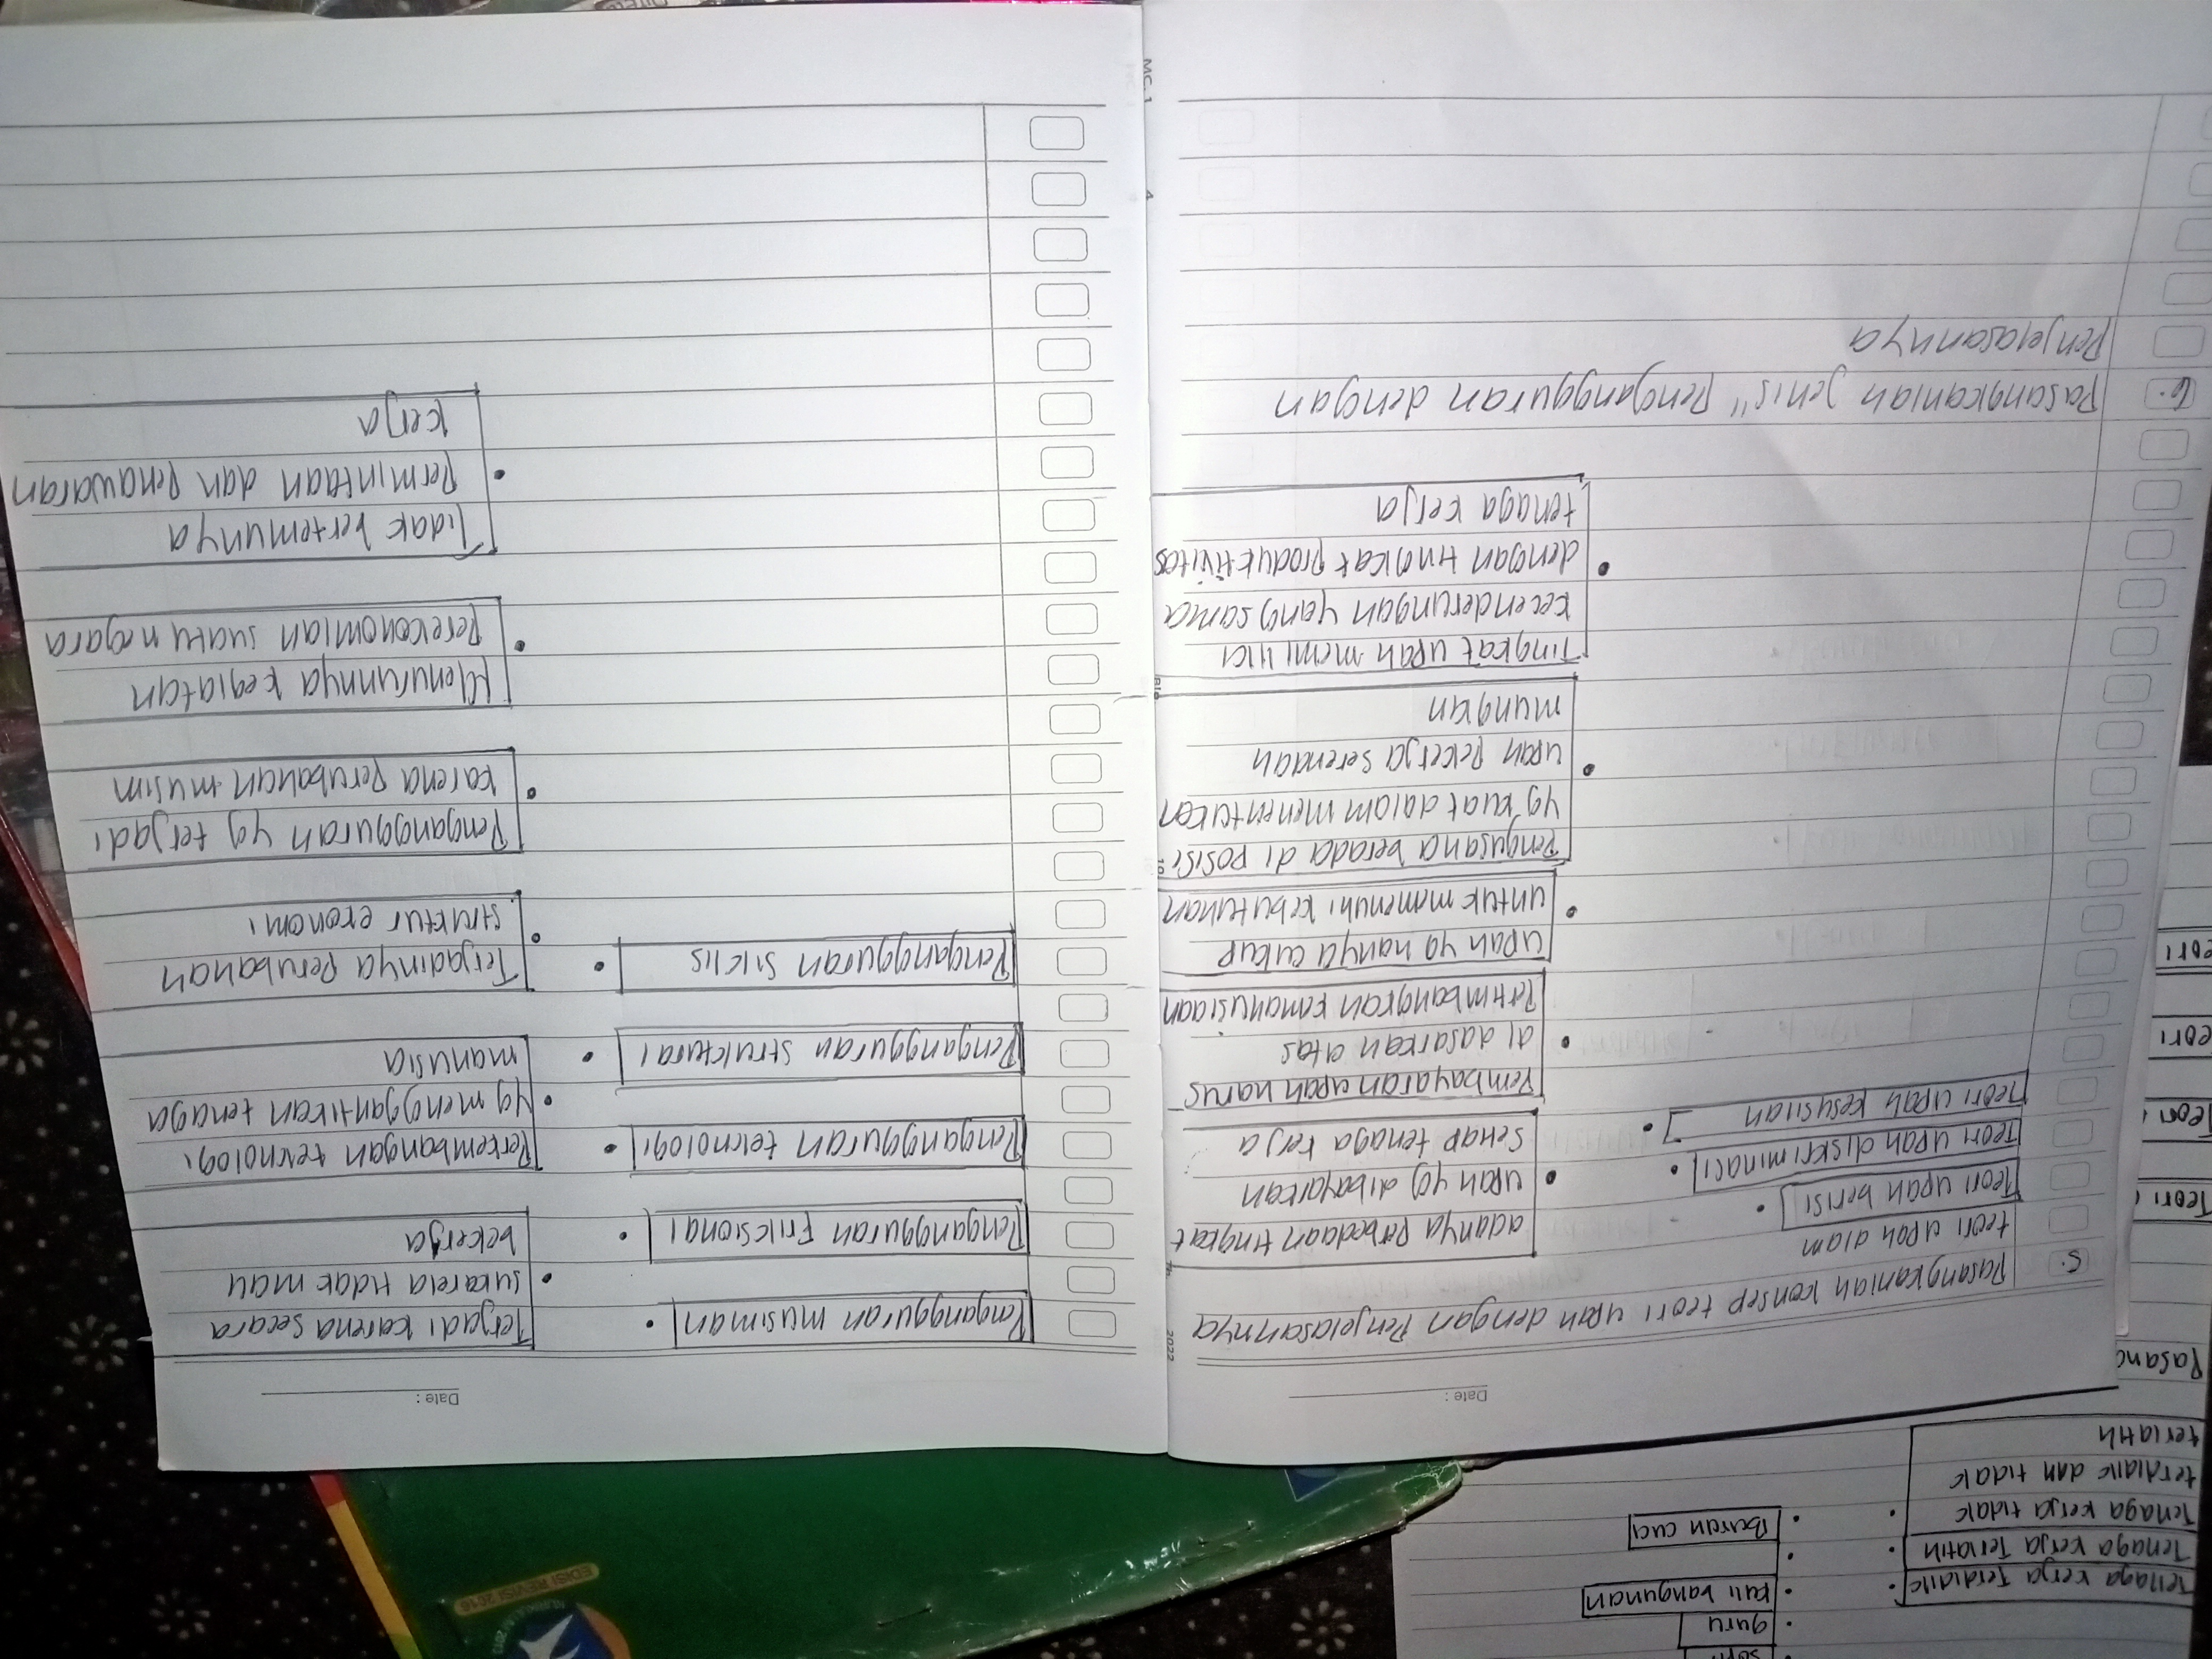 guru
Tenaga kerja Terdidik
kuli bangunan
Tenaga kerja Terlatih
Tenaga kerja tidak
terdidik dan tidak
terlatih
Buruh cuci
Pasang
Teori
Teori
eori
eori
EDISI REVISI 2016
Date :
5.
Pasangkanlah konsep teori upah dengan Penjelasannya
teori upah alam
Teori upah berisi
Teori upah diskriminaci
Teori upah kesusilan
adanya Perbedaan tingkat
upah yg dibayarkan
setiap tenaga kerja
Pembayaran upah harus
di dasarkan atas
Pertimbangkan kemanusiaan
upah yg hanya cukup
untuk memenuhi kebutuhan
Pengusaha berada di posisi
yg kuat dalam menentuken
upah pekerja serendah
mungkin
Tingkat upah memiliki
kecenderungan yang sama
dengan tingkat produktivitas
tenaga kerja
6.
Pasangkanlah jenis" pengangguran dengan
Penjelasannya
2022
MC. 1
Date :
Pengangguran musiman
Pengangguran Friksional
Pengangguran teknologi
Pengangguran struktural
Pengangguran siklis
Terjadi karena secara
sukarela tidak mau
bekerja
Perkembangan teknologi
yg menggantikan tenaga
manusia
Terjadinya perubahan
struktur ekonomi
Pengangguran yg terjadi
karena perubahan musim
Menurunnya kegiatan
perekonomian suatu negara
Tidak bertemunya
Permintaan dan penawaran
kerja